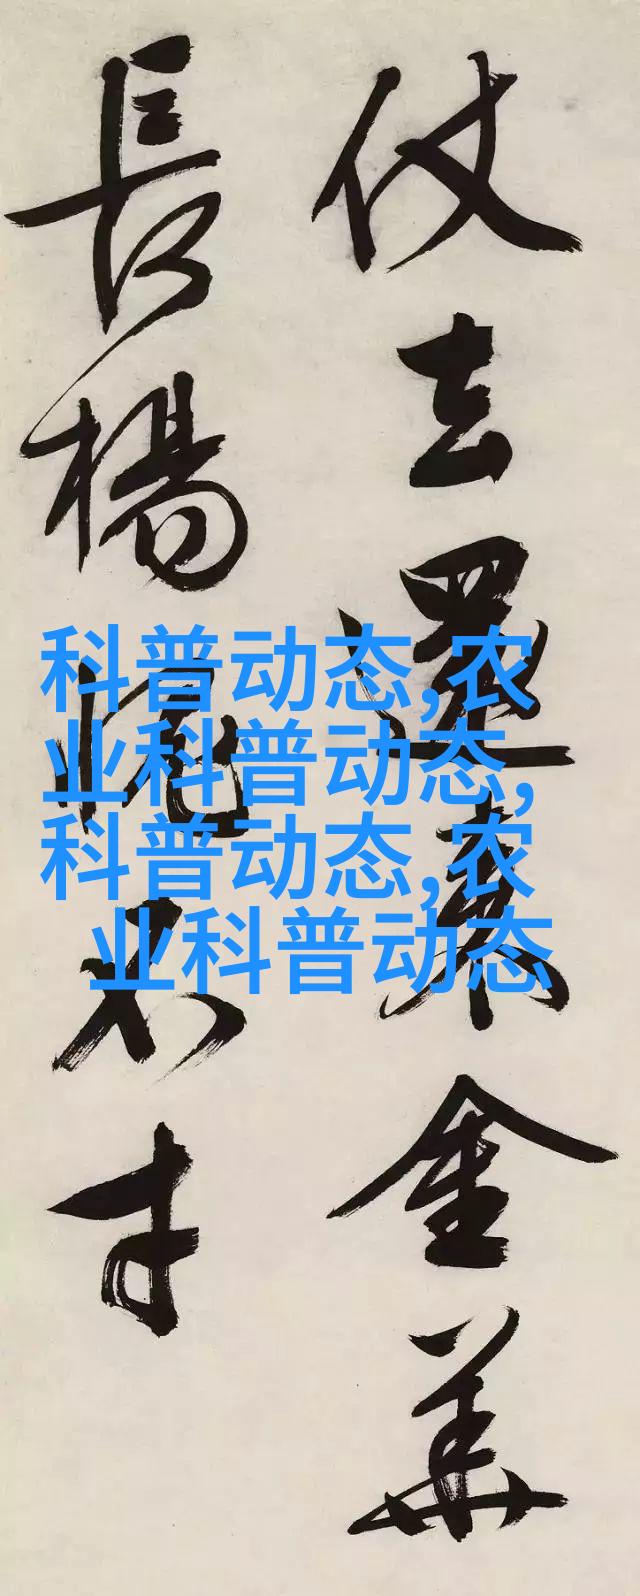 仗去還來金華
長楊愧不才
科普动态,农
业科普动态,
科普动态,农
业科普动态